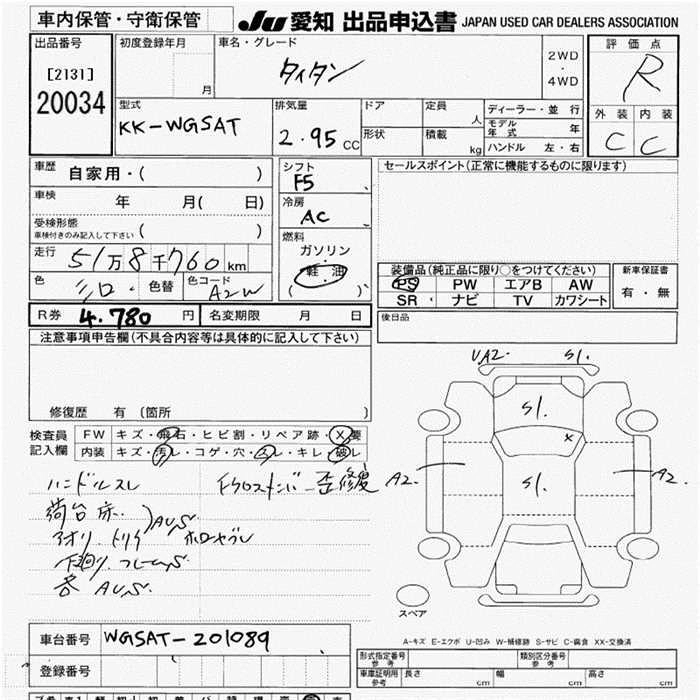 車内保管・守衛保管
JU 愛知 出品申込書 JAPAN USED CAR DEALERS ASSOCIATION
出品番号
[2131]
20034
初度登録年月
月
車名・グレード
タイタン
2WD
・
4WD
評価点
R
外装 内装
C C
型式
KK-WGSAT
排気量
2.95 CC
ドア
形状
定員
人
積載
kg
ディーラー・並行
モデル年式 年
ハンドル 左・右
車歴
自家用・( )
車検
年 月( 日)
受検形態
車検付きのみ記入して下さい ( )
走行
51万8千760km
色
シロ・
色替
色コード
A2W
シフト
F5
冷房
AC
燃料
ガソリン
軽油
( )
セールスポイント(正常に機能するものに限ります)
装備品(純正品に限り○をつけてください)
PS PW エアB AW
SR ナビ TV カワシート
新車保証書
有・無
後日品
R券 4.780 円
名変期限 月 日
注意事項申告欄(不具合内容等は具体的に記入して下さい)
修復歴 有 (箇所 )
検査員
記入欄
FW キズ・飛石・ヒビ割・リペア跡・X要
内装 キズ・汚レ・コゲ・穴・スレ・キレ・破レ
ハンドルスレ
Fクロスメンバー歪修復
荷台床.
アオリ.トリイ
)AU,S
ホロヤブレ
下廻り.フレームS
各 AU,S.
UA2. S1.
S1.
X
A2.
S1.
A2.
スペア
A-キズ E-エクボ U-凹み W-補修跡 S-サビ C-腐食 XX-交換済
車台番号
WGSAT-201089
登録番号
形式指定番号
参考
類別区分番号
参考
車庫証明用
参考
長さ cm 幅 cm 高さ cm